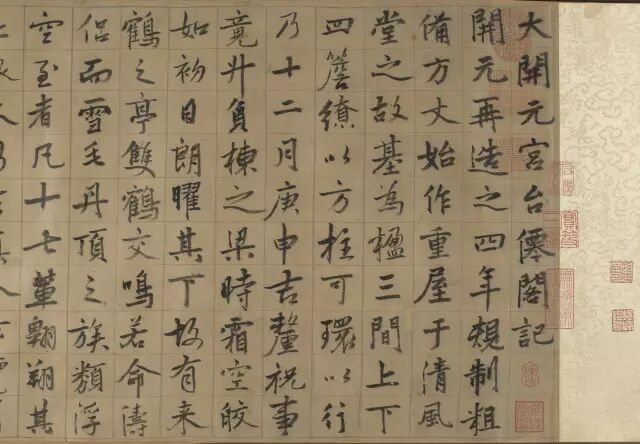 大開元宮台僊閣記
開元再造之四年規制粗
備方丈始作重屋于清風
堂之故基為楹三間上下
四簷繚以方柱可環以行
乃十二月庚申吉釐祝事
竟升負棟之梁時霜空皎
如初日朗曜其下故有来
鶴之亭雙鶴交鳴若命濤
侶而雪毛丹頂之族類浮
空至者凡十七輩翱翔其